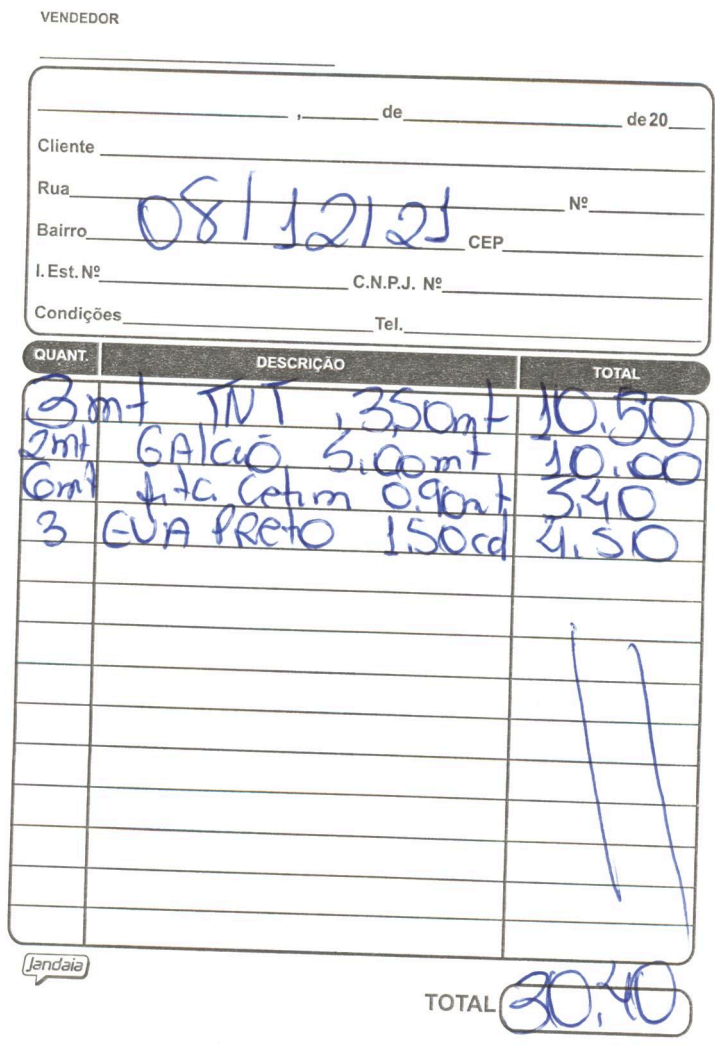 VENDEDOR
, de de 20
Cliente
Rua Nº
08/12/21
Bairro CEP
I. Est. Nº C.N.P.J. Nº
Condições Tel.
QUANT. DESCRIÇÃO TOTAL
3mt TNT ,3,50mt 10,50
2mt GAlCÃO 5,00mt 10,00
6mt fita Cetim 0,90mt 5,40
3 EVA PRetO 1,50cd 4,50
jandaia
TOTAL 30,40